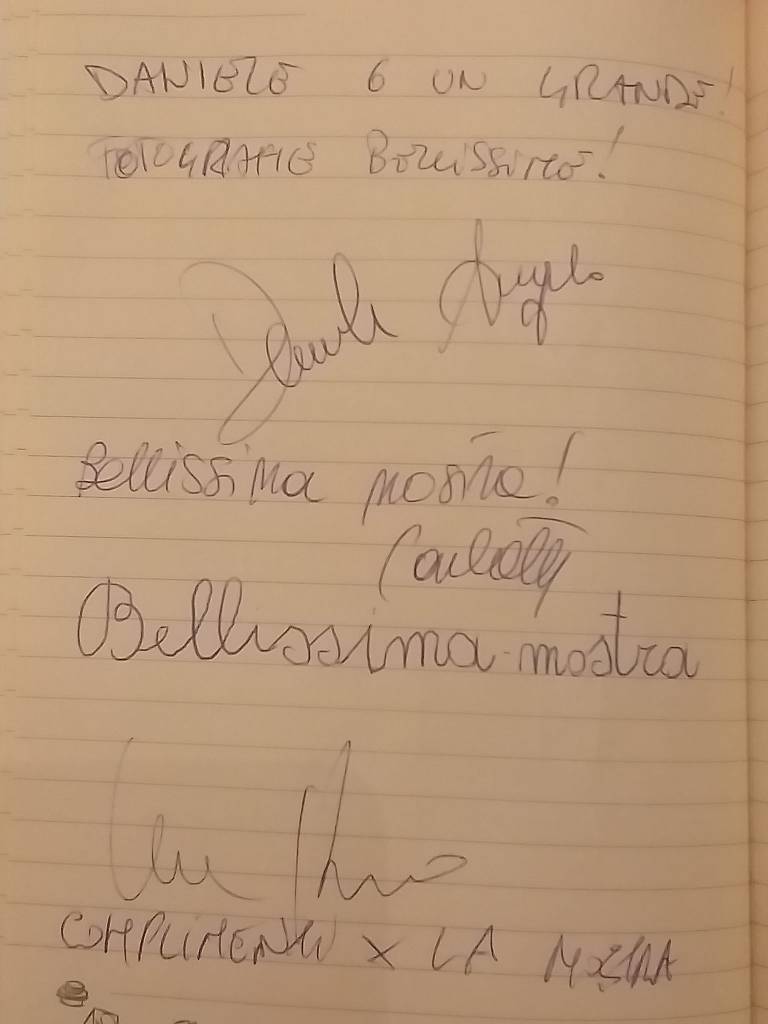 DANIELE 6 UN GRANDE!
FOTOGRAFIE BELLISSIME!
Bellissima mostra!
Bellissima mostra
COMPLIMENTI X LA MOSTRA